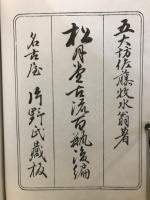 五大坊佐藤牧水翁著
松月堂古流百瓶後編
名古屋 片野氏蔵板